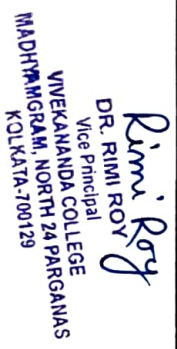 Rimi Roy
DR. RIMI ROY
Vice Principal
VIVEKANANDA COLLEGE
MADHYAMGRAM, NORTH 24 PARGANAS
KOLKATA-700129